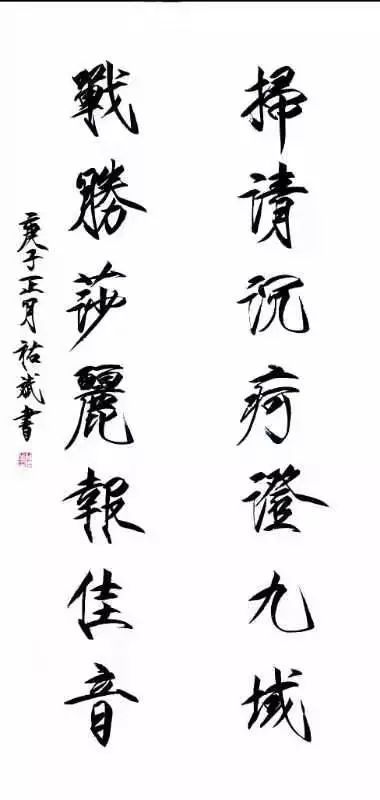 掃清沉疴澄九域
戰勝莎麗報佳音
庚子正月祐斌書